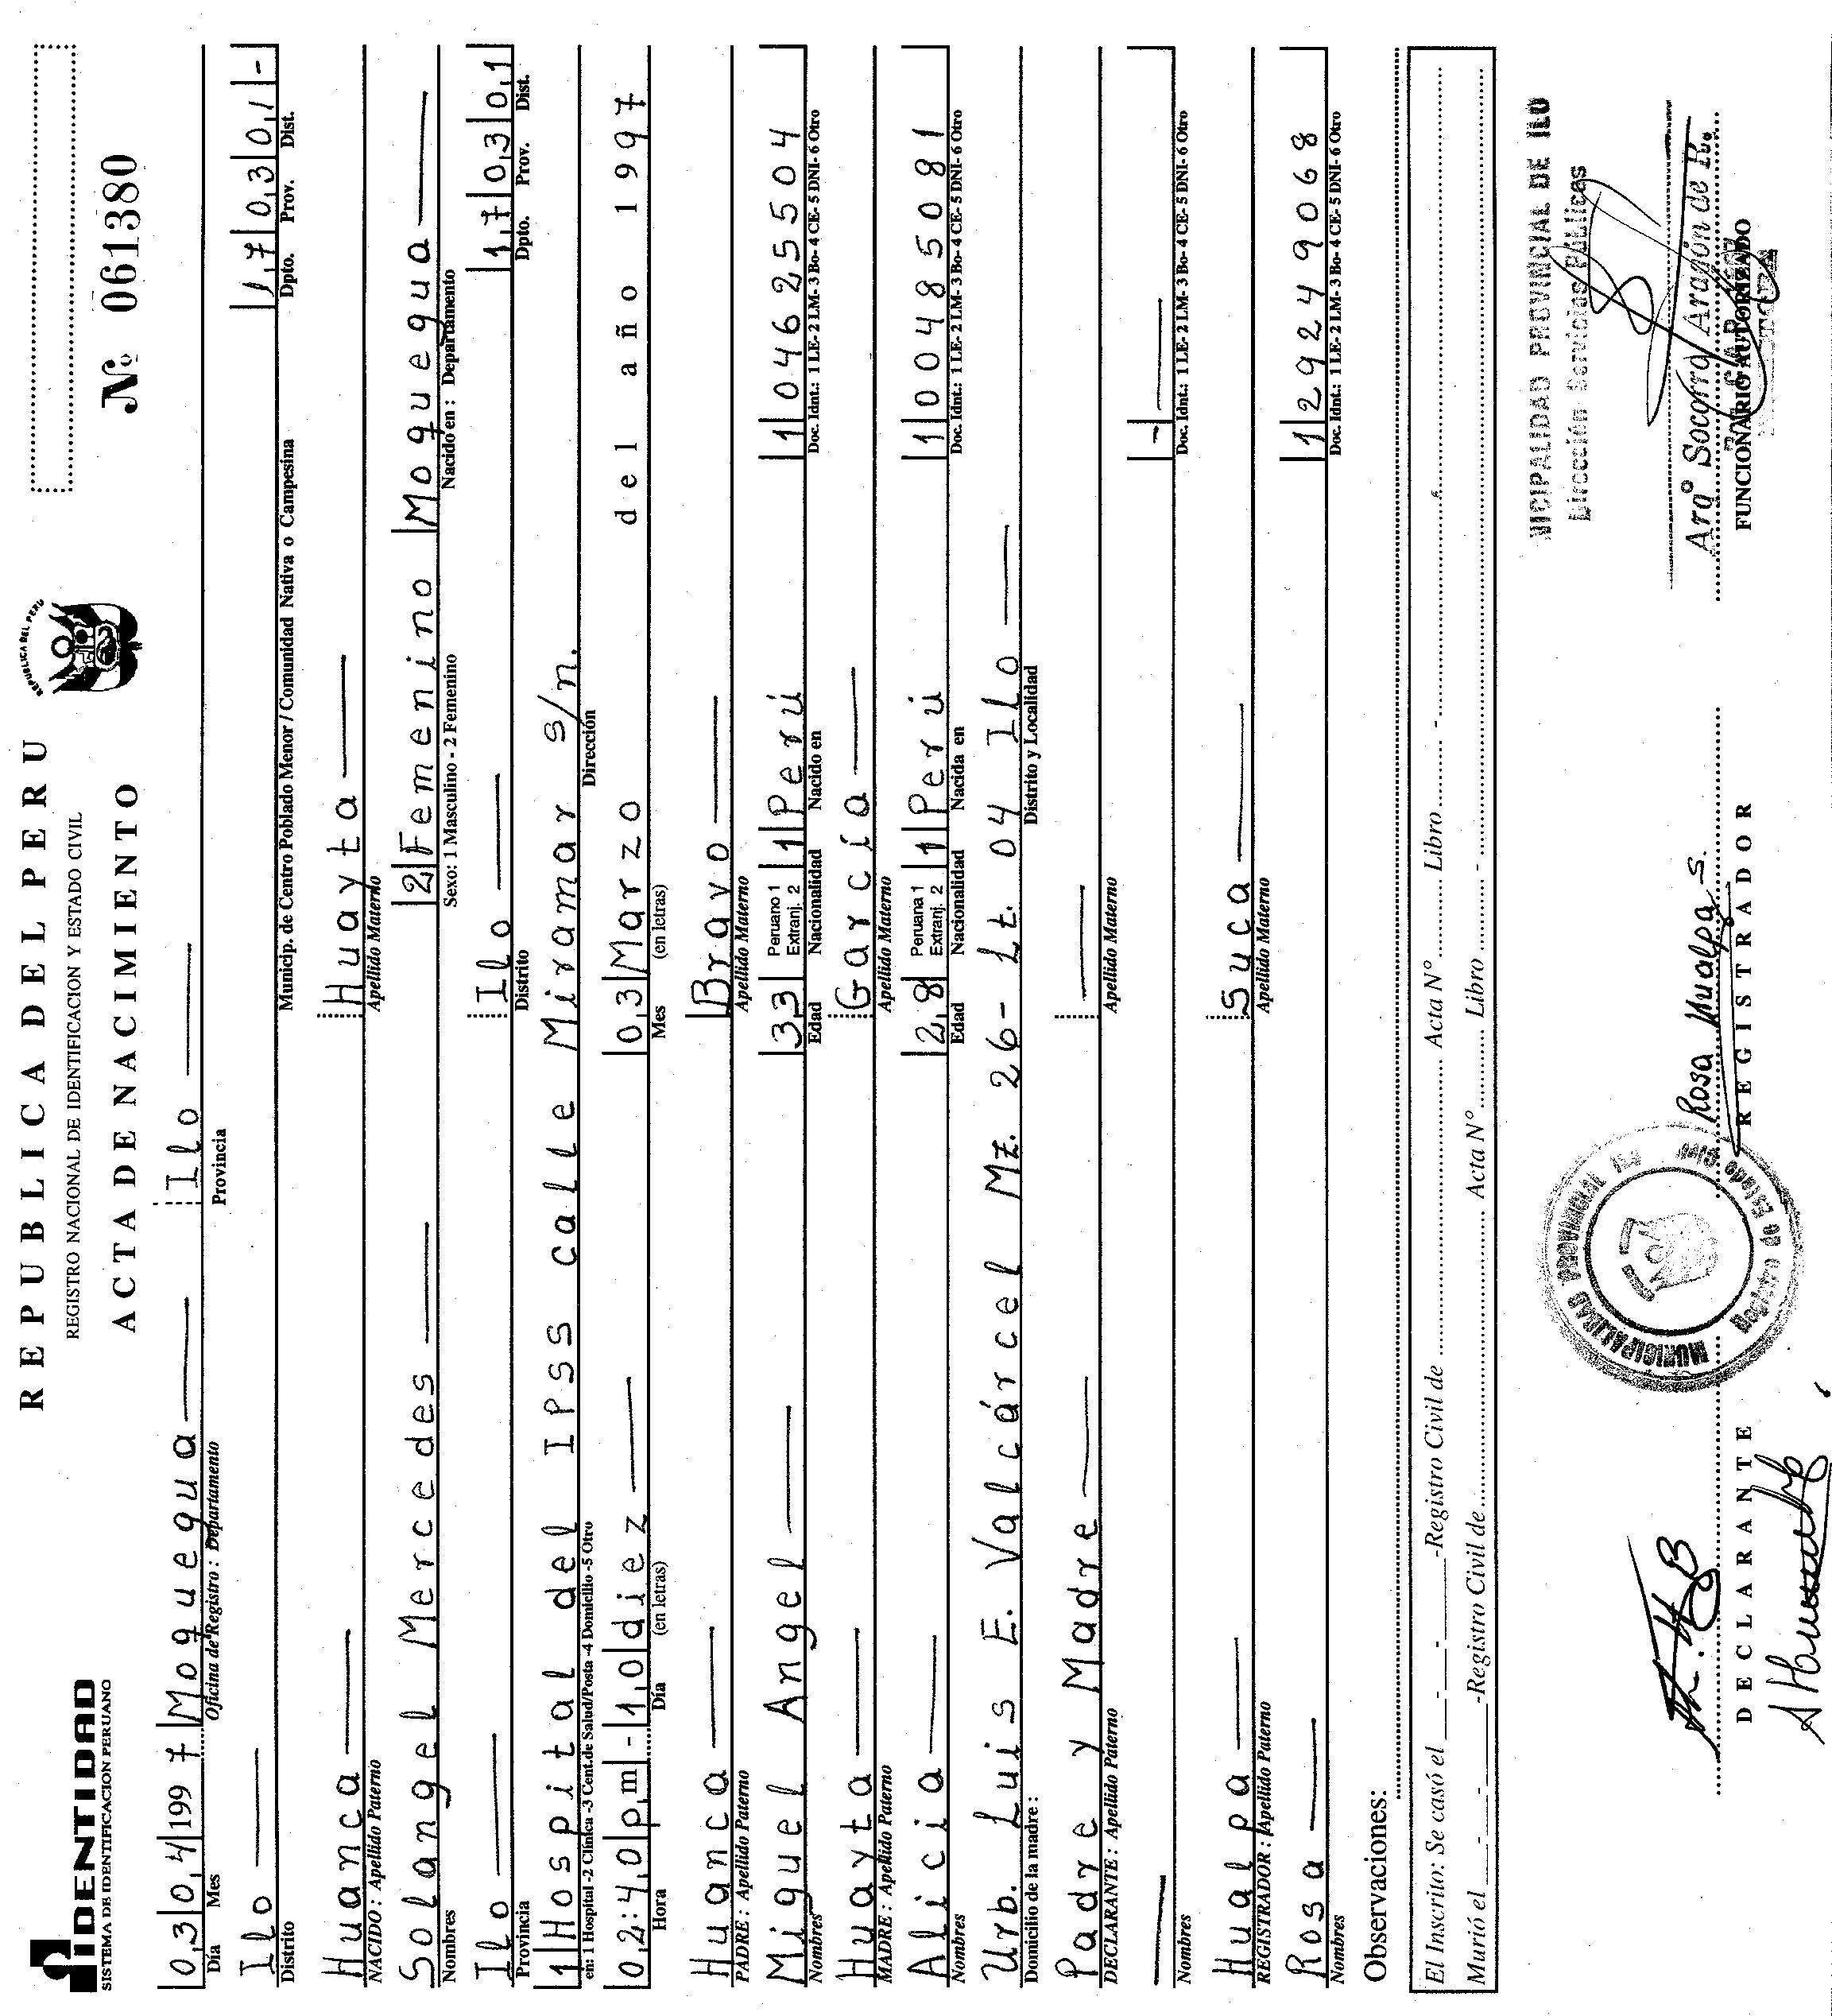 REPUBLICA DEL PERU
REGISTRO NACIONAL DE IDENTIFICACION Y ESTADO CIVIL
ACTA DE NACIMIENTO
IDENTIDAD
SISTEMA DE IDENTIFICACION PERUANO
REPUBLICA DEL PERU
Nº 061380
03 04 1997 Moquegua Ilo
Día Mes Oficina de Registro : Departamento Provincia
Ilo 17 03 01 -
Distrito Municip. de Centro Poblado Menor / Comunidad Nativa o Campesina Dpto. Prov. Dist.
Huanca Huayta
NACIDO : Apellido Paterno Apellido Materno
Solangel Mercedes 2 Femenino Moquegua
Nombres Sexo: 1 Masculino - 2 Femenino Nacido en : Departamento
Ilo Ilo 17 03 01
Provincia Distrito Dpto. Prov. Dist.
1 Hospital del IPSS calle Miramar s/n.
en: 1 Hospital -2 Clínica -3 Cent.de Salud/Posta -4 Domicilio -5 Otro Dirección
02:40 pm - 10 diez 03 Marzo del año 1997
Hora Día (en letras) Mes (en letras)
Huanca Bravo
PADRE : Apellido Paterno Apellido Materno
Miguel Angel 33 Peruano 1 Extranj. 2 1 Perú 1 04625504
Nombres Edad Nacionalidad Nacido en Doc. Idnt.: 1 LE- 2 LM- 3 Bo- 4 CE- 5 DNI- 6 Otro
Huayta García
MADRE : Apellido Paterno Apellido Materno
Alicia 28 Peruana 1 Extranj. 2 1 Perú 1 00485081
Nombres Edad Nacionalidad Nacida en Doc. Idnt.: 1 LE- 2 LM- 3 Bo- 4 CE- 5 DNI- 6 Otro
Urb. Luis E. Valcárcel Mz. 26- Lt. 04 Ilo
Domicilio de la madre : Distrito y Localidad
Padre y Madre
DECLARANTE : Apellido Paterno Apellido Materno
-
Nombres Doc. Idnt.: 1 LE- 2 LM- 3 Bo- 4 CE- 5 DNI- 6 Otro
Hualpa Suca
REGISTRADOR : Apellido Paterno Apellido Materno
Rosa 1 29249068
Nombres Doc. Idnt.: 1 LE- 2 LM- 3 Bo- 4 CE- 5 DNI- 6 Otro
Observaciones:
El Inscrito: Se casó el - - -Registro Civil de Acta Nº Libro -
Murió el - - -Registro Civil de Acta Nº Libro -
NICIPALIDAD PROVINCIAL DE ILO
Dirección Servicios Públicos
MUNICIPALIDAD PROVINCIAL ILO
Registro de Estado Civil
Rosa Hualpa S.
Arqº Socorro Aragón de R.
DECLARANTE REGISTRADOR FUNCIONARIO AUTORIZADO